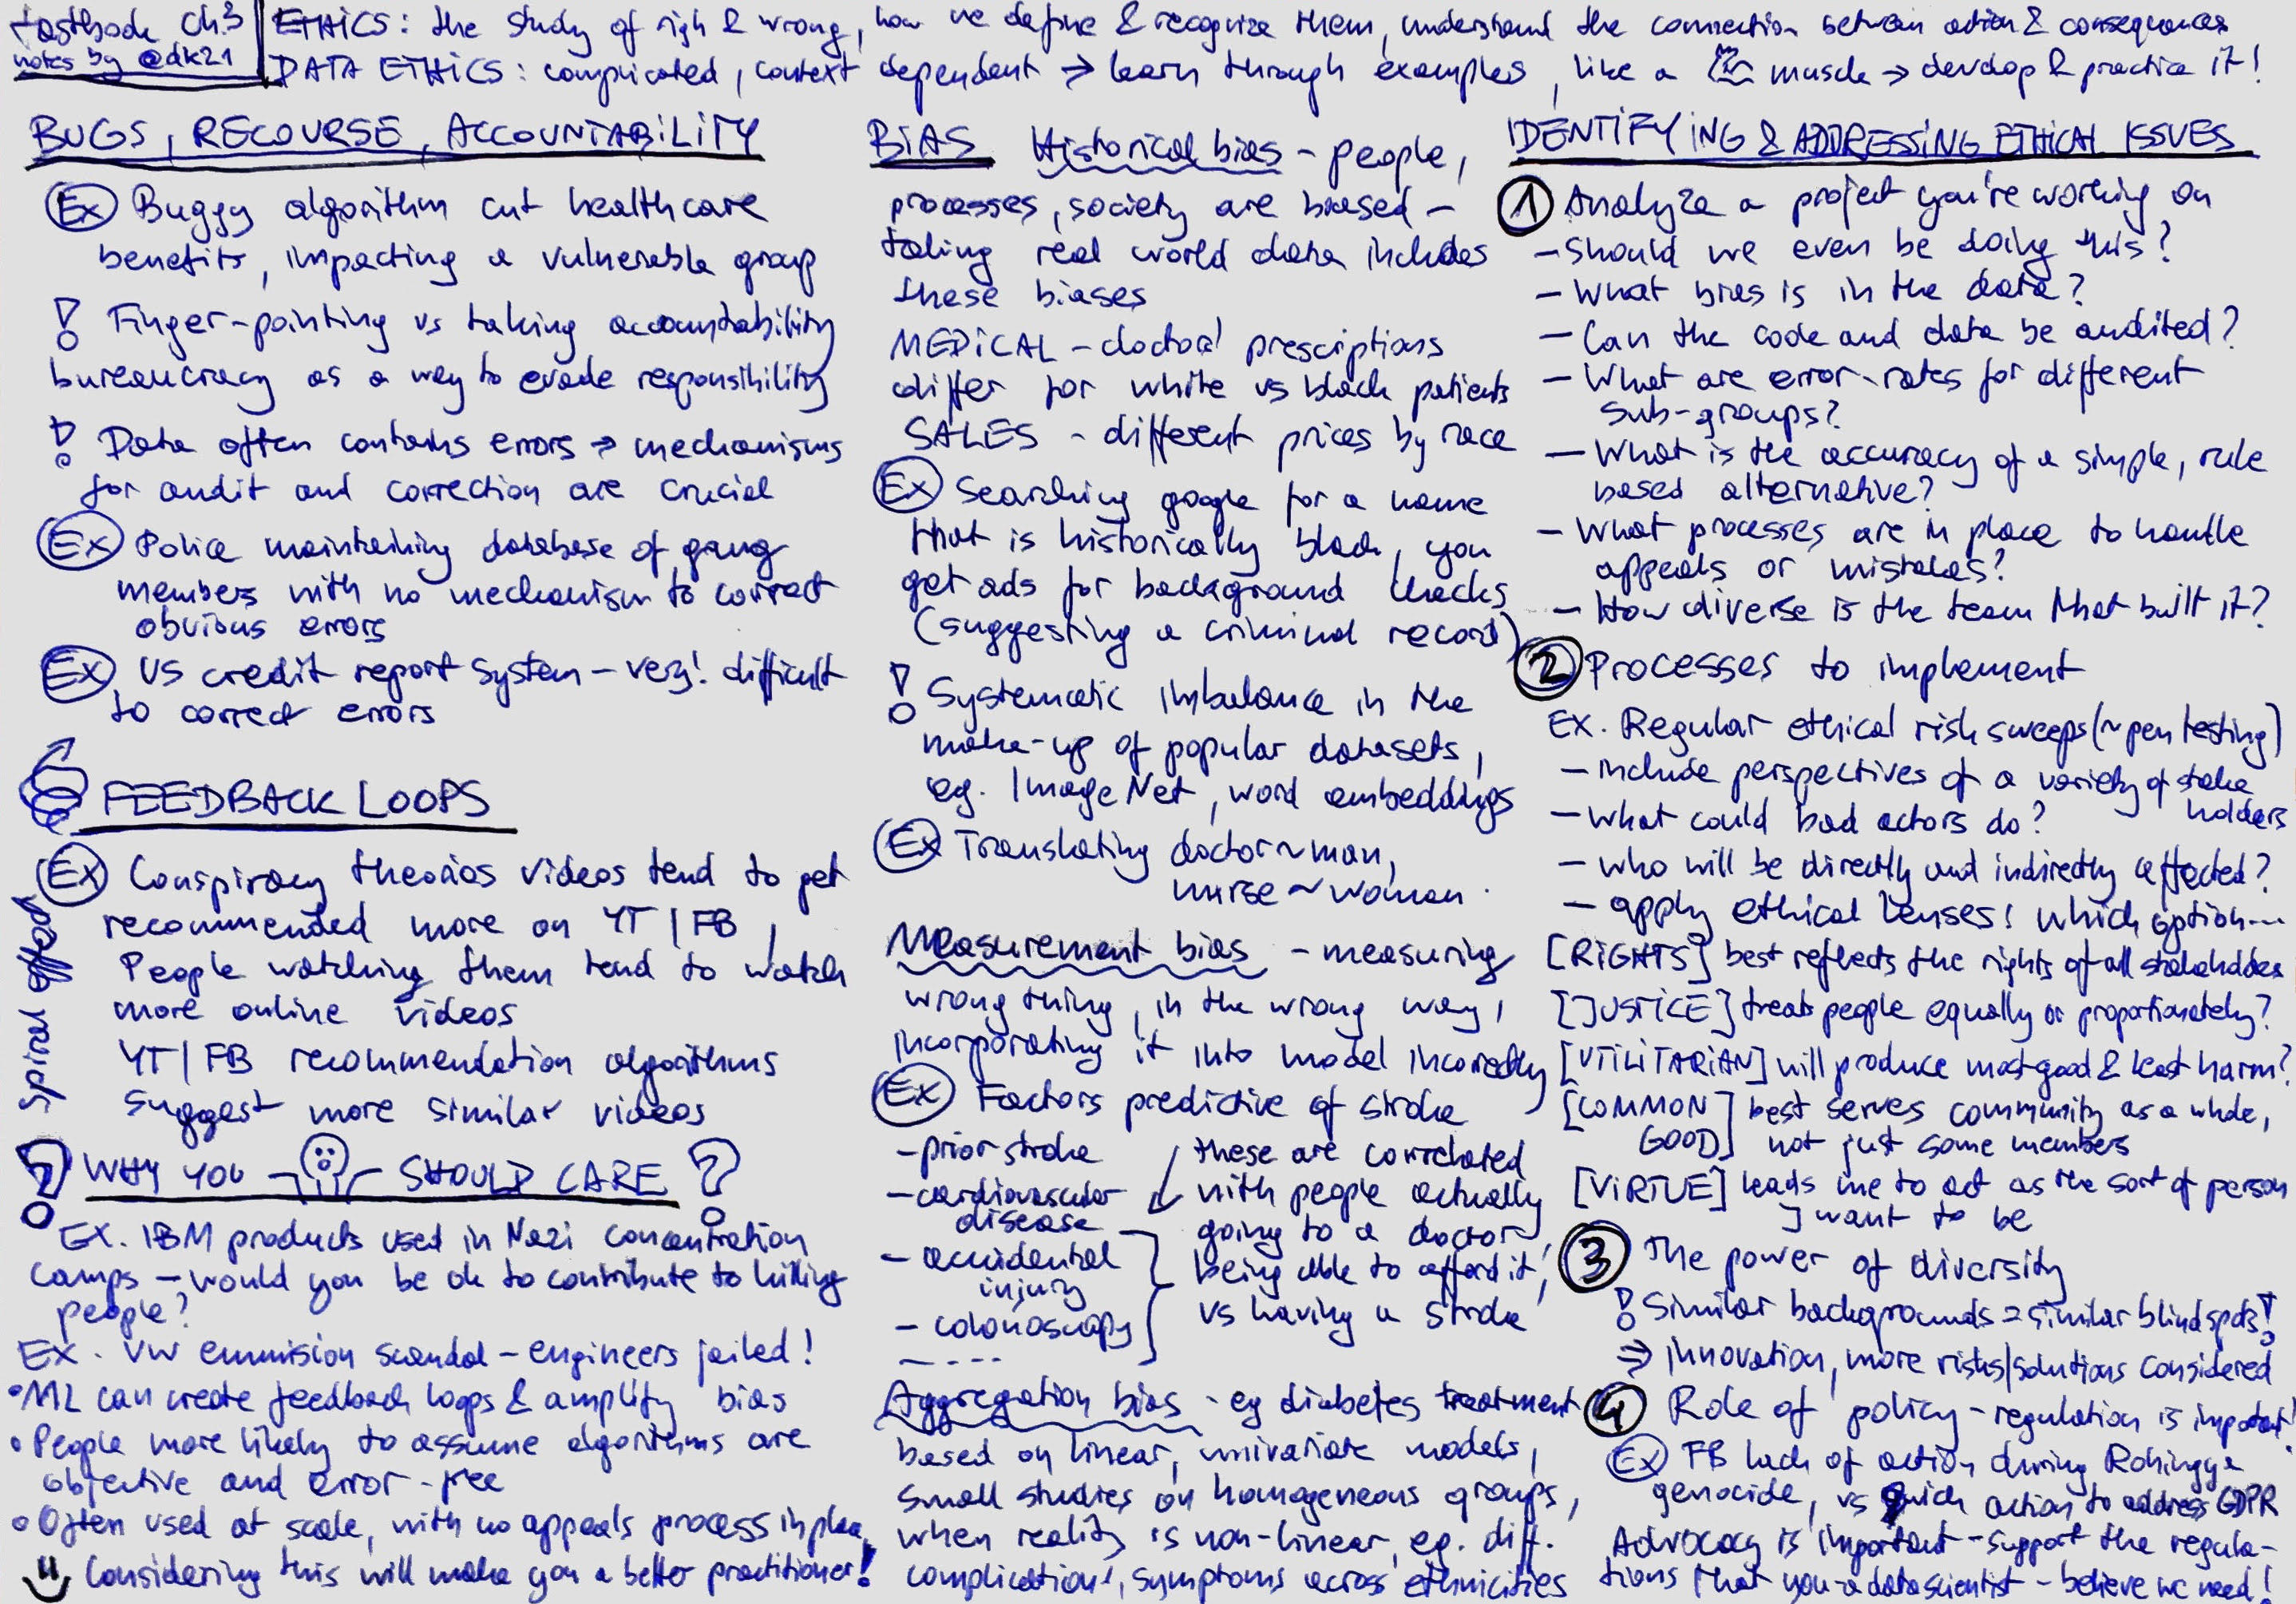 fastbook Ch3
notes by @dk21
ETHICS: the study of righ & wrong, how we define & recognize them, understand the connection between action & consequences
DATA ETHICS: complicated, context dependent → learn through examples, like a muscle → develop & practice it!
BUGS, RECOURSE, ACCOUNTABILITY
Ex Buggy algorithm cut healthcare
benefits, impacting a vulnerable group
! Finger-pointing vs taking accountability
bureaucracy as a way to evade responsibility
! Data often contains errors → mechanisms
for audit and correction are crucial
Ex Police maintaining database of gang
members with no mechanism to correct
obvious errors
Ex US credit report system - very! difficult
to correct errors
FEEDBACK LOOPS
Spiral effect
Ex Conspiracy theories videos tend to get
recommended more on YT/FB,
People watching them tend to watch
more online videos
YT/FB recommendation algorithms
suggest more similar videos
? WHY YOU SHOULD CARE ?
EX. IBM products used in Nazi concentration
camps - would you be ok to contribute to killing
people?
EX. VW emmision scandal - engineers jailed!
• ML can create feedback loops & amplify bias
• People more likely to assume algorithms are
objective and error-free
• Often used at scale, with no appeals process in place
Considering this will make you a better practitioner!
BIAS Historical bias - people,
processes, society are biased -
taking real world data includes
these biases
MEDICAL - doctoral prescriptions
differ for white vs black patients
SALES - different prices by race
Ex Searching google for a name
that is historically black, you
get ads for background checks
(suggesting a criminal record)
! Systematic imbalance in the
make-up of popular datasets,
eg. ImageNet, word embeddings
Ex Translating doctor ~ man,
nurse ~ woman.
Measurement bias - measuring
wrong thing, in the wrong way,
incorporating it into model incorrectly
Ex Factors predictive of stroke
- prior stroke
- cardiovascular
disease
- accidental
injury
- colonoscopy
- - - -
these are correlated
with people actually
going to a doctor,
being able to afford it,
vs having a stroke
Aggregation bias - eg diabetes treatment
based on linear, univariate models,
small studies on homogeneous groups,
when reality is non-linear, eg. diff.
complications, symptoms across ethnicities
IDENTIFYING & ADDRESSING ETHICAL ISSUES
1 Analyze a project you're working on
- Should we even be doing this?
- What bias is in the data?
- Can the code and data be audited?
- What are error-rates for different
sub-groups?
- What is the accuracy of a simple, rule
based alternative?
- What processes are in place to handle
appeals or mistakes?
- How diverse is the team that built it?
2 Processes to implement
EX. Regular ethical risk sweeps (~pen testing)
- include perspectives of a variety of stake
holders
- What could bad actors do?
- who will be directly and indirectly affected?
- apply ethical lenses! which option...
[RIGHTS] best reflects the rights of all stakeholders
[JUSTICE] treats people equally or proportionately?
[UTILITARIAN] will produce most good & least harm?
[COMMON GOOD] best serves community as a whole,
not just some members
[VIRTUE] leads me to act as the sort of person
I want to be
3 The power of diversity
! Similar backgrounds = similar blind spots!
⇒ innovation, more risks/solutions considered
4 Role of policy - regulation is important!
Ex FB lack of action during Rohingya
genocide, vs quick action to address GDPR
Advocacy is important - support the regula-
tions that you - a data scientist - believe we need!